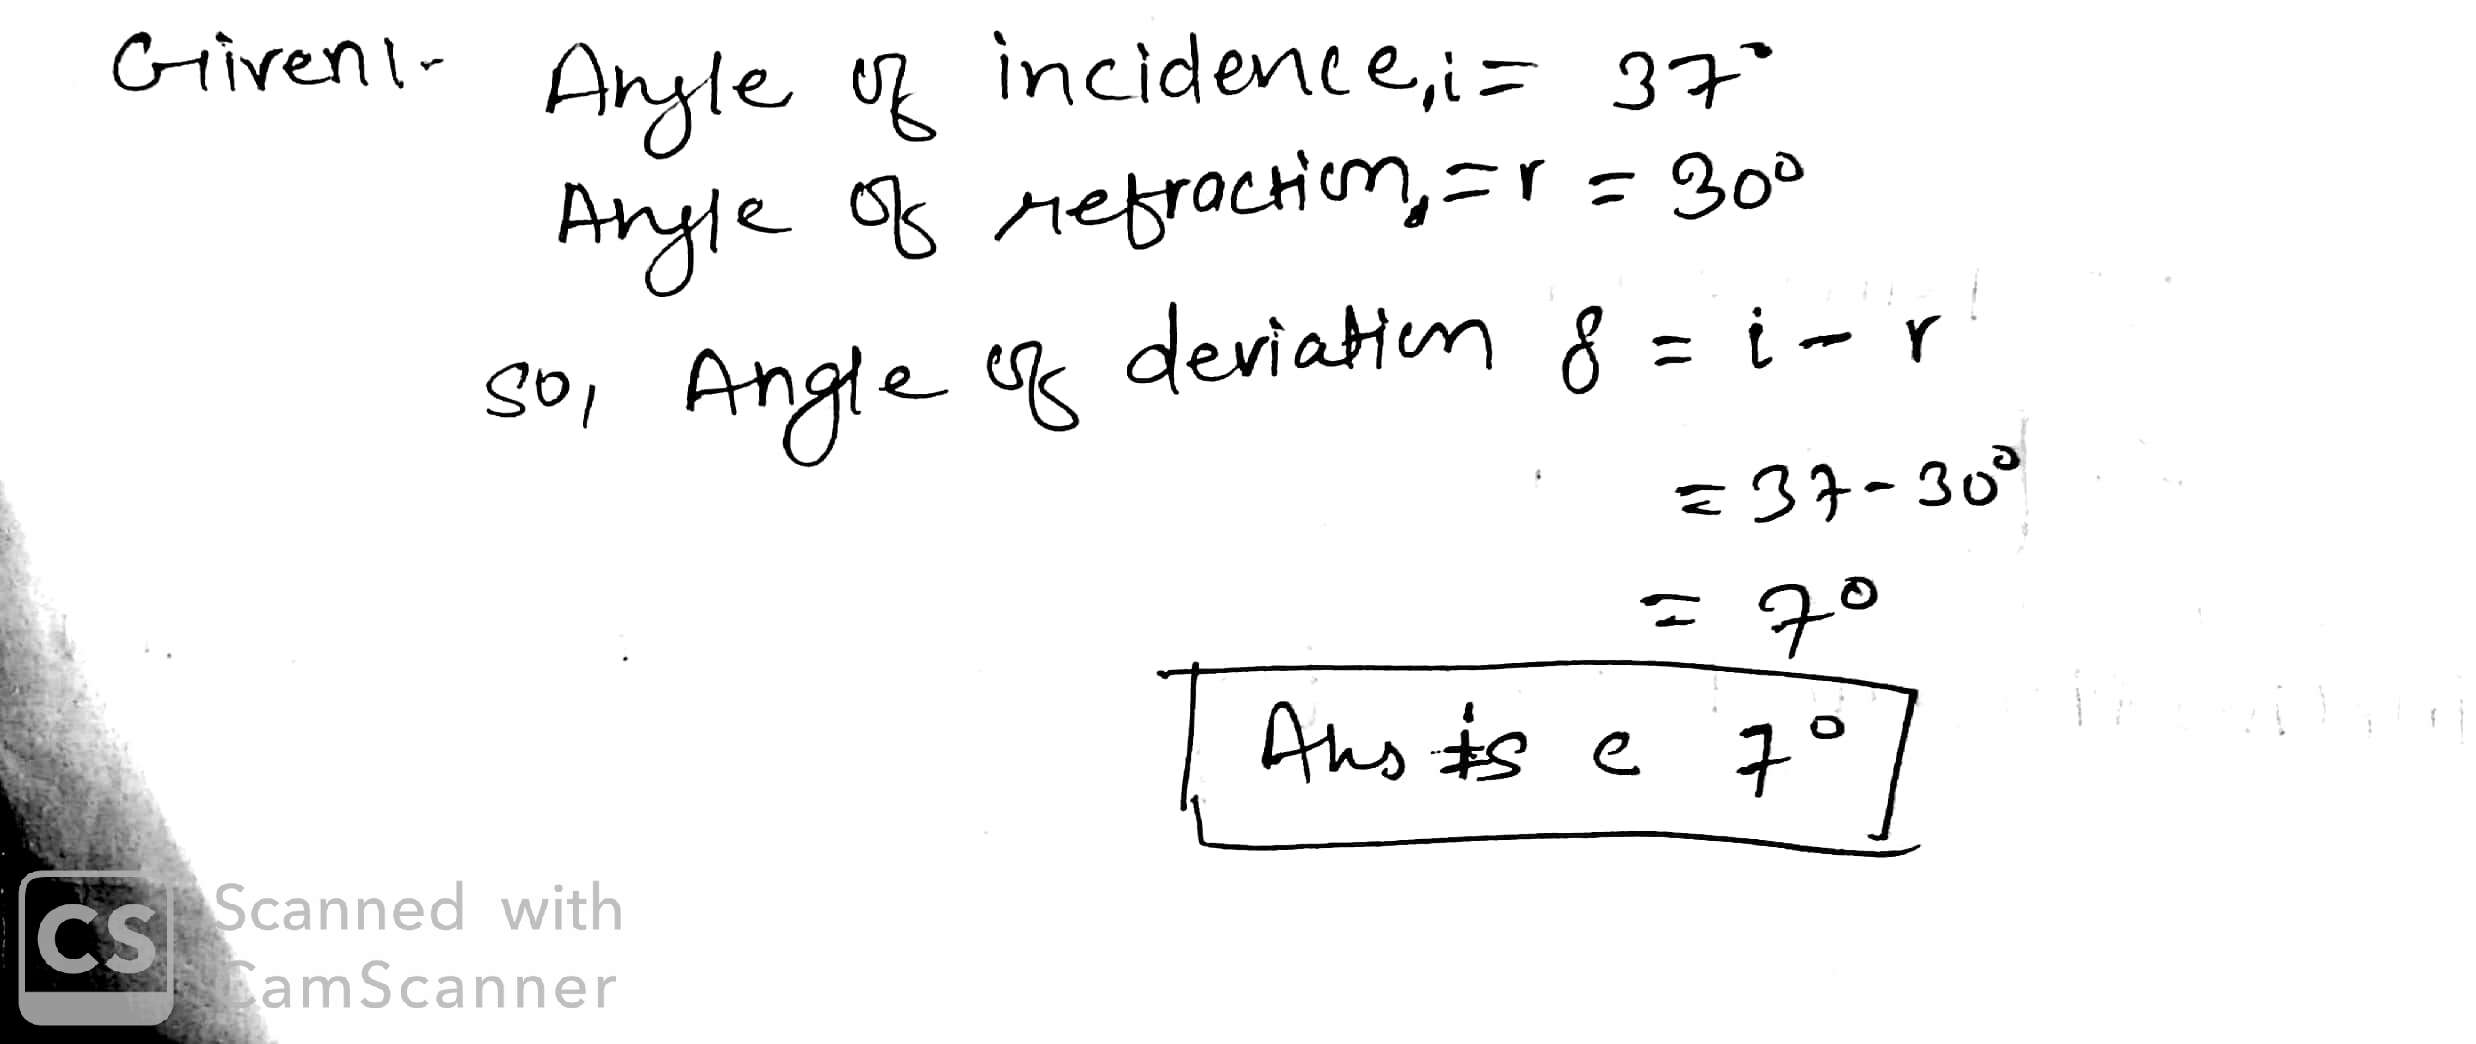 Given:- Angle of incidence, i = 37°
Angle of refraction, = r = 30°
So, Angle of deviation δ = i - r
= 37 - 30°
= 7°
Ans is c 7°
CS Scanned with
CamScanner